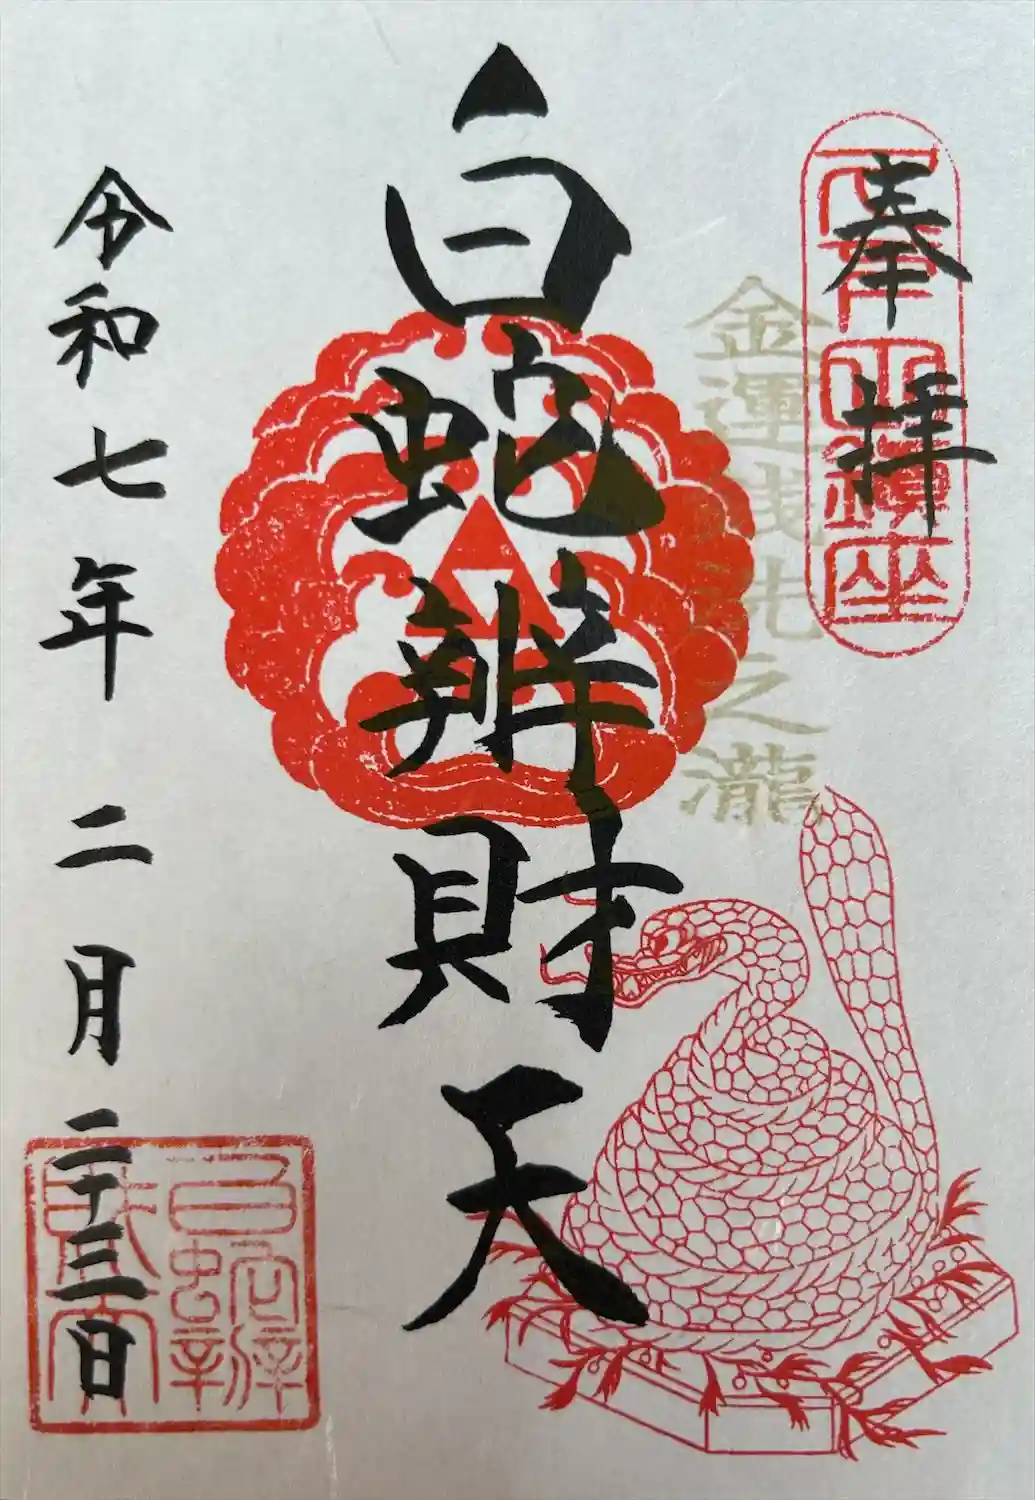 奉拝
金運銭洗之瀧
白蛇辨財天
令和七年二月二十三日
白蛇辨財天